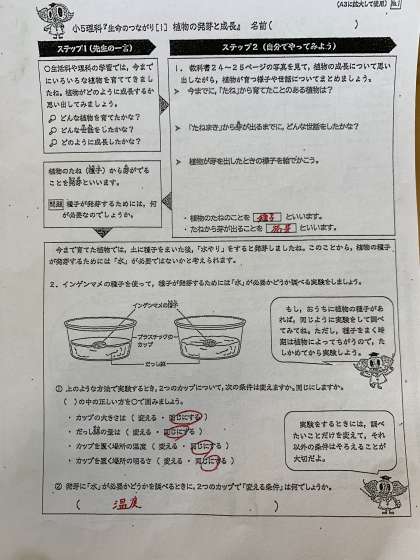 (A3に拡大して使用) №1
小5理科『生命のつながり[1] 植物の発芽と成長』 名前( )
ステップ1(先生の一言)
○生活科や理科の学習では、今まで
にいろいろな植物を育ててきまし
たね。植物がどのように成長するか
思い出してみましょう。
どんな植物を育てたかな?
どんな世話をしたかな?
どのように成長したかな?
植物のたね(種子)から芽がでる
ことを発芽といいます。
問題 種子が発芽するためには、何
が必要なのでしょうか。
ステップ2(自分でやってみよう)
1.教科書24~25ページの写真を見て、植物の成長について思い
出しながら、植物が育つ様子や世話についてまとめましょう。
➤ 今までに、「たね」から育てたことのある植物は?
➤ 「たねまき」から芽が出るまでに、どんな世話をしたかな?
➤ 植物が芽を出したときの様子を絵でかこう。
・植物のたねのことを 種子 といいます。
・たねから芽が出ることを 発芽 といいます。
今まで育てた植物では、土に種子をまいた後、「水やり」をすると発芽しましたね。このことから、植物の種子
が発芽するためには「水」が必要ではないかと考えられます。
2.インゲンマメの種子を使って、種子が発芽するためには「水」が必要かどうか調べる実験をしましょう。
インゲンマメの種子
プラスチックの
カップ
だっし綿
もし、おうちに植物の種子があ
れば、同じように実験をして調べ
てみてね。ただし、種子をまく時
期は植物によってちがうので、た
しかめてから実験しよう。
① 上のような方法で実験するとき、2つのカップについて、次の条件は変えますか。同じにしますか。
( )の中の正しい方を○で囲みましょう。
・カップの大きさは(変える・同じにする)
・だっし綿の量は(変える・同じにする)
・カップを置く場所の温度(変える・同じにする)
・カップを置く場所の明るさ(変える・同じにする)
実験をするときには、調べ
たいことだけを変えて、それ
以外の条件はそろえることが
大切だよ。
② 発芽に「水」が必要かどうかを調べるときに、2つのカップで「変える条件」は何でしょうか。
( 温度 )